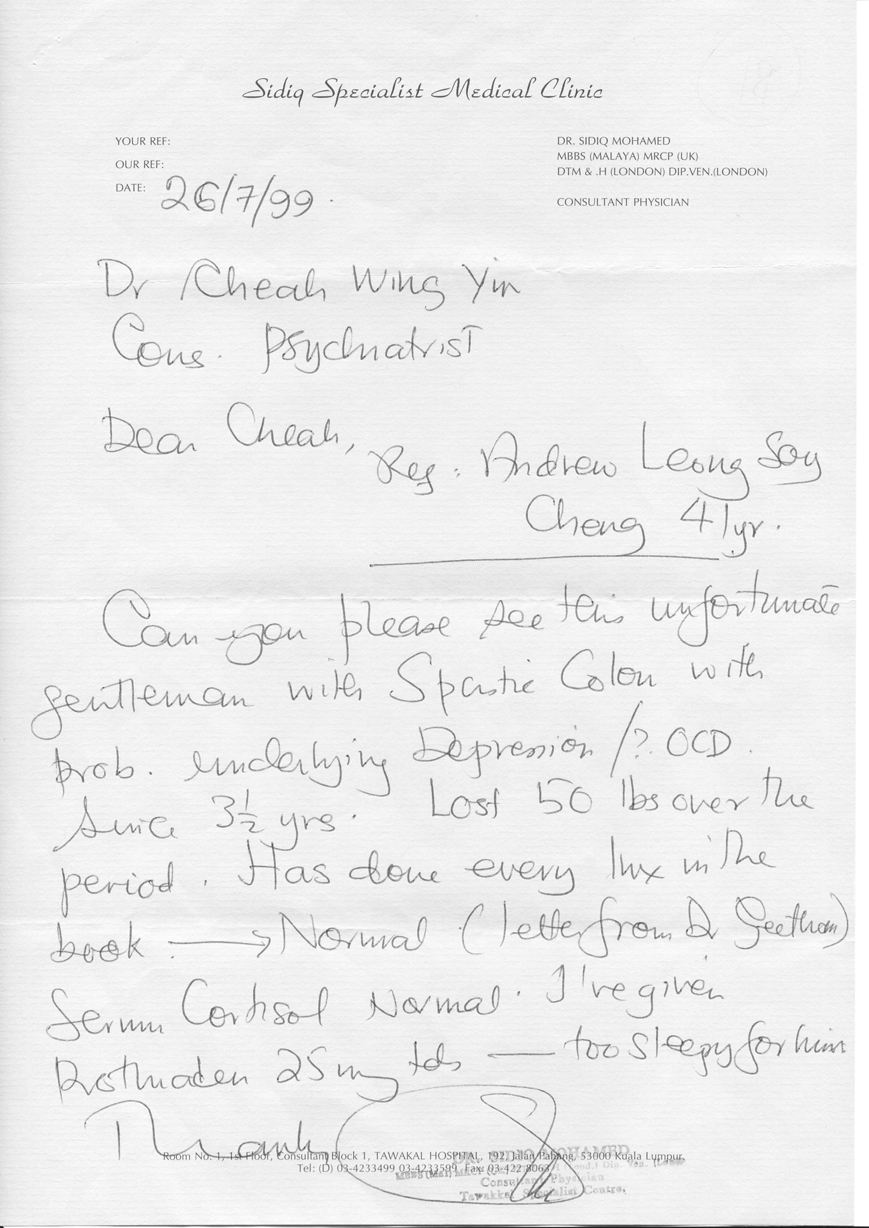 Sidiq Specialist Medical Clinic
YOUR REF:
OUR REF:
DATE: 26/7/99.
DR. SIDIQ MOHAMED
MBBS (MALAYA) MRCP (UK)
DTM & .H (LONDON) DIP.VEN.(LONDON)
CONSULTANT PHYSICIAN
Dr Cheah Wing Yin
Cons. Psychiatrist
Dear Cheah,
Reg: Andrew Leong Soy
Cheng 41yr.
Can you please see this unfortunate
gentleman with Spastic Colon with
prob. underlying Depression /?. OCD.
since 3½ yrs. Lost 50 lbs over the
period. Has done every Invx in the
book → Normal (letter from Dr Geetham)
Serum Cortisol Normal. I've given
Prothiaden 25 mg tds — too sleepy for him
Thank
Room No. 1, 1st Floor, Consultant Block 1, TAWAKAL HOSPITAL, 192, Jalan Pahang, 53000 Kuala Lumpur.
Tel: (D) 03-4233499 03-4233599 Fax: 03-422 8063
DR. SIDIQ MOHAMED
Consultant Physician
Tawakkal Specialist Centre.